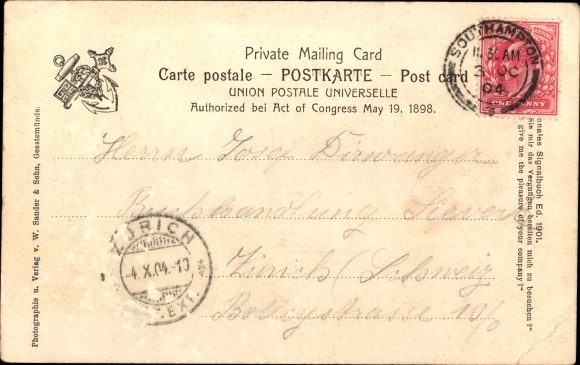 Private Mailing Card
Carte postale — POSTKARTE — Post card
UNION POSTALE UNIVERSELLE
Authorized bei Act of Congress May 19. 1898.
SOUTHAMPTON
AM
3 OC
04
ONE PENNY
Herrn
Buchhandlung
Zürich (Schweiz
ZÜRICH
-4.X.04.-10
EXP.
Photographie u. Verlag v. W. Sander & Sohn, Geestemünde.
onales Signalbuch Ed. 1901.
Sie mir das Vergnügen bereiten mich zu besuchen?"
give me the pleasure of your company?"